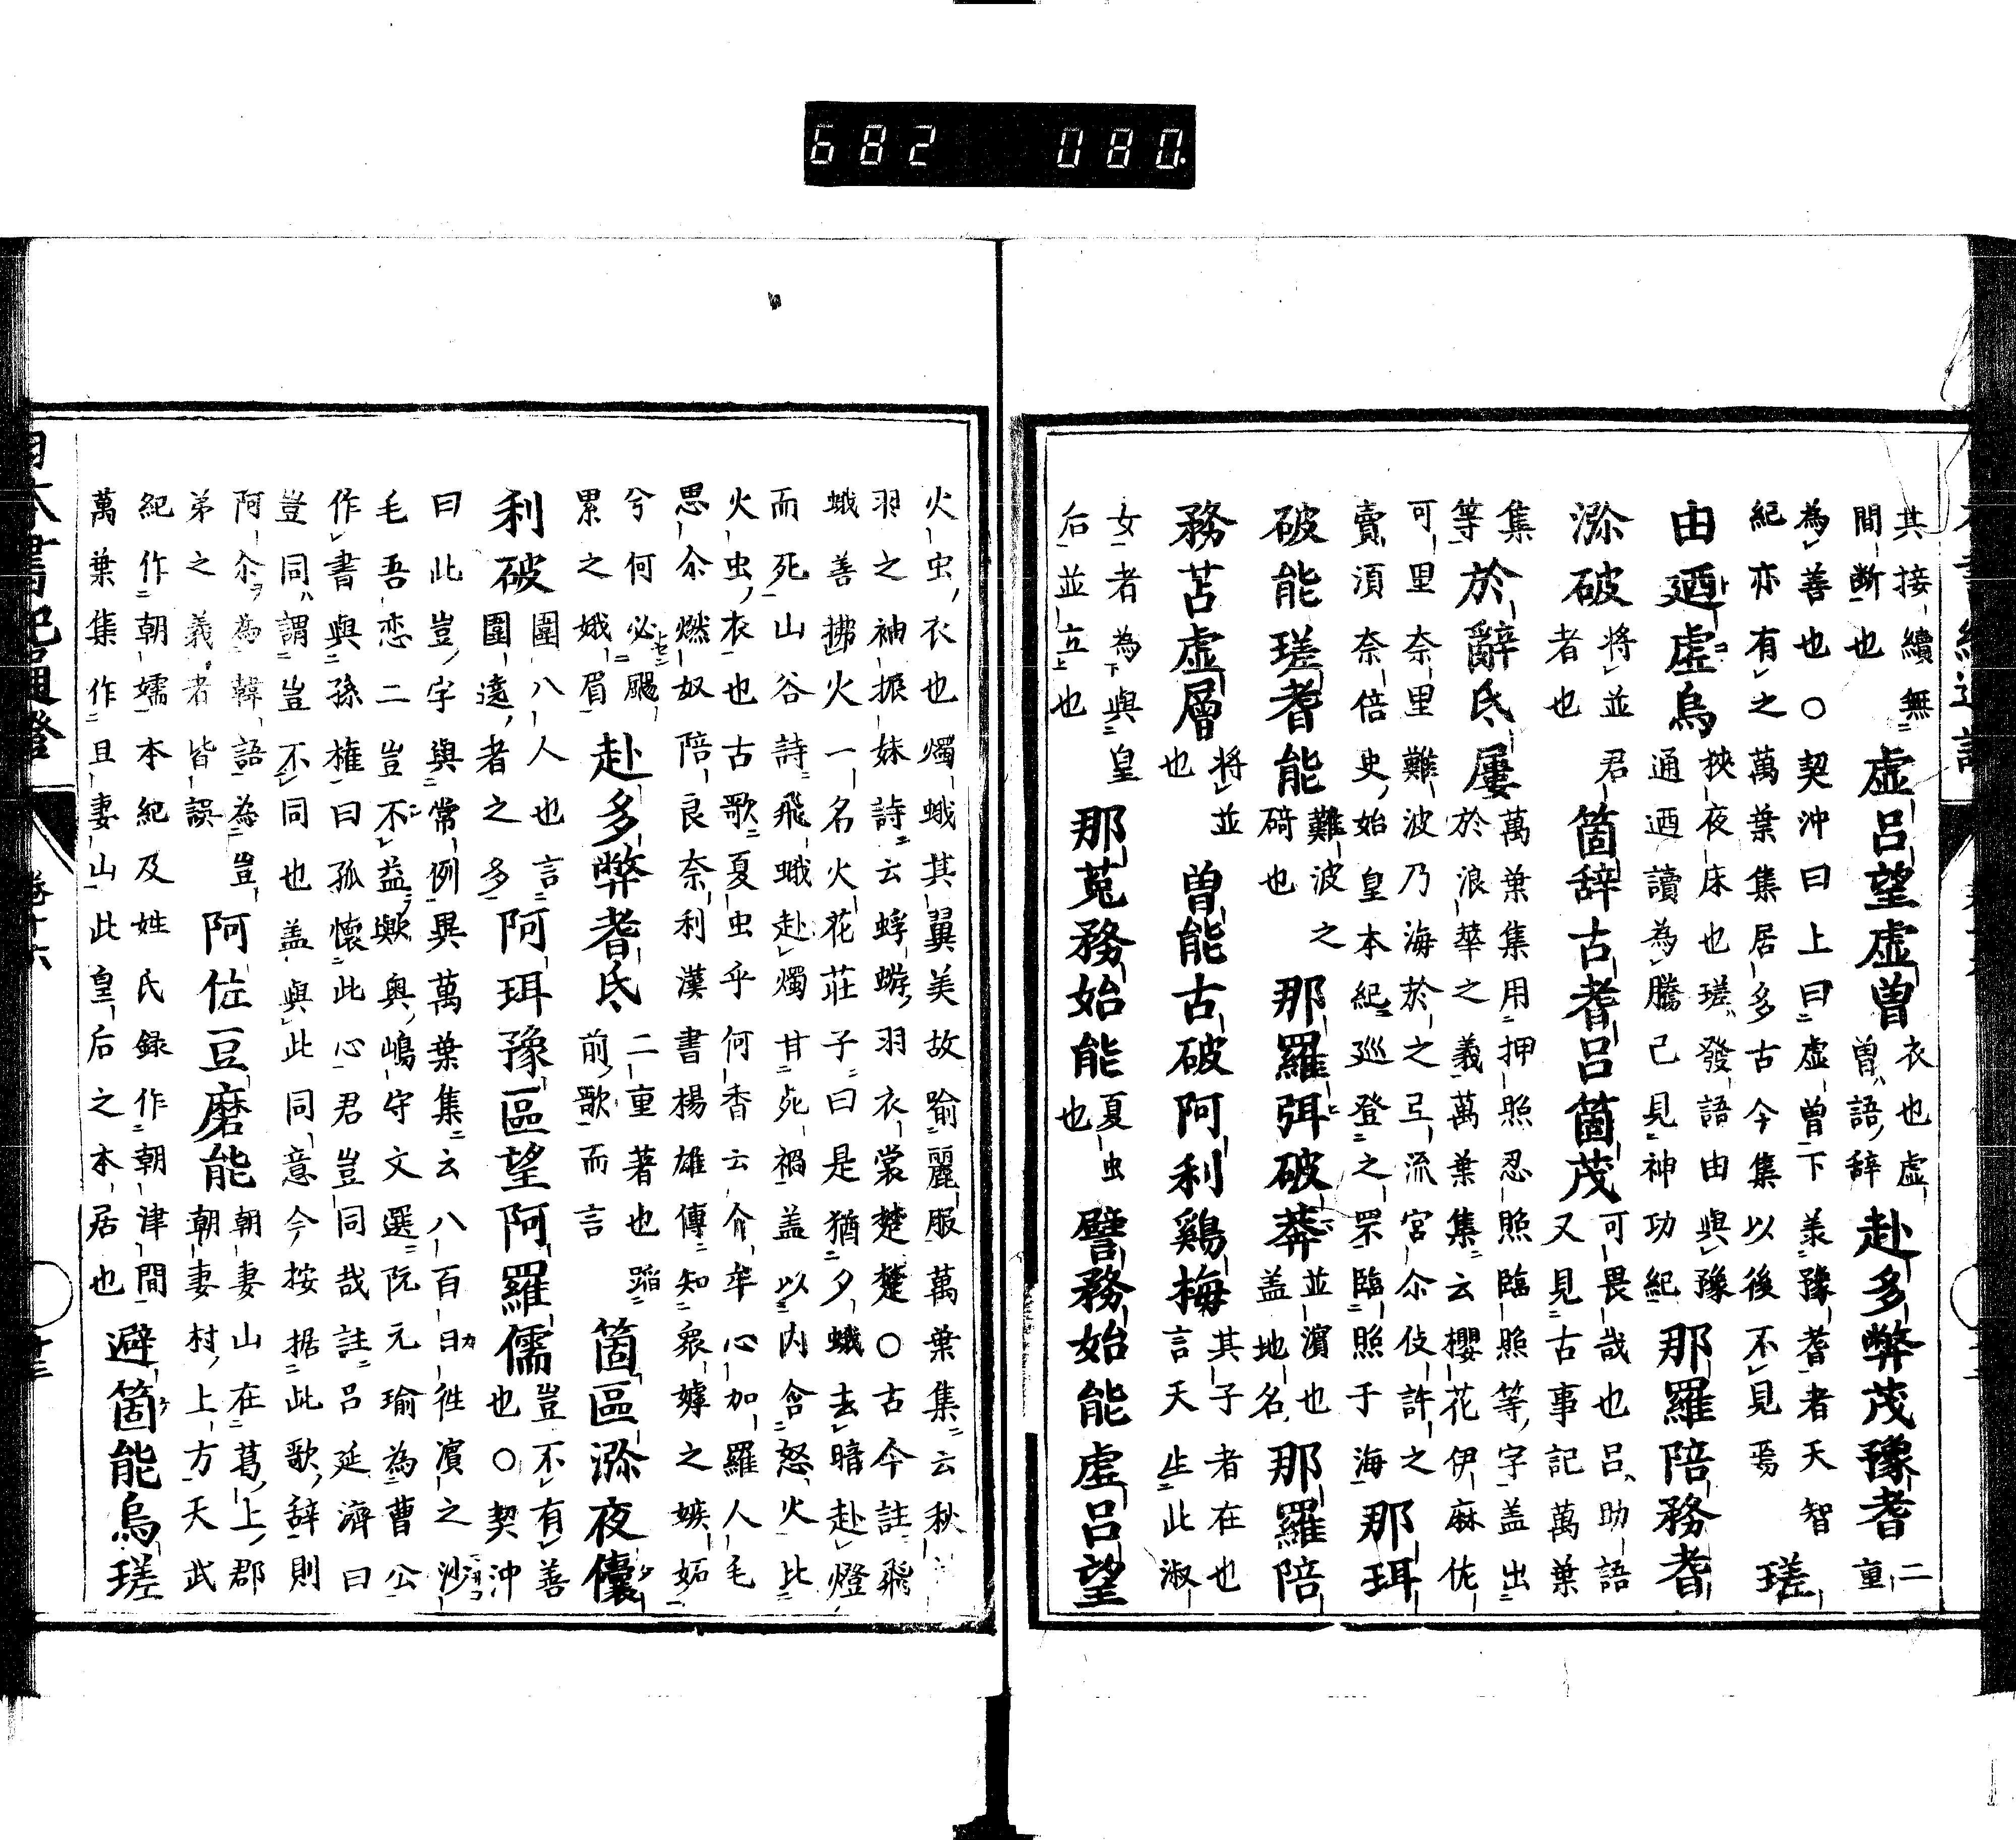 682 080.
其接續無
間斷也
虛呂望虛曾
衣也虛
曾語辞
赴多弊茂豫耆
二
重
為善也○契沖曰上曰虛曾下美豫耆者天智
紀亦有之萬葉集居多古今集以後不見焉
瑳
由廼虛烏
挾夜床也瑳發語由與豫
通廼讀為騰已見神功紀
那羅陪務耆
泲破
將並
者也
君
箇辞古耆呂箇茂
可畏哉也呂助語
又見古事記萬葉
集
等
於辭氐屢
萬葉集用押照忍照臨照等字盖出
於浪華之義萬葉集云櫻花伊麻佐
可里奈里難波乃海於之弖流宮尒伎許之
賣湏奈倍史始皇本紀巡登之罘臨照于海
那珥
破能瑳耆能
難波之
碕也
那羅弭破莽
並濱也
盖地名
那羅陪
務苫虛層
將並
也
曾能古破阿利鷄梅
其子者在也
言天生此淑
女者為與皇
后並立也
那菟務始能
夏虫
也
譬務始能虛呂望
火虫衣也燭蛾其翼美故喻麗服萬葉集云秋
羽之袖振妹詩云蜉蝣羽衣裳楚楚○古今註飛
蛾善拂火一名火花莊子曰是猶夕蛾去暗赴燈
而死山谷詩飛蛾赴燭甘死禍盖以内含怒火比
火虫衣也古歌夏虫乎何香云尒牟心加羅人毛
思尒燃奴陪良奈利漢書楊雄傳知衆嫭之嫉妬
兮何必颺
累之娥眉
赴多弊耆氐
二重著也
前歌而言
箇區泲夜儾
利破
圍八人也言
圍遶者之多
阿珥豫區望阿羅儒
豈不有善
也○契沖
曰此豈字與常例異萬葉集云八百日徃濱之沙
毛吾恋二豈不益歟奥嶋守文選阮元瑜為曹公
作書與孫權曰孤懷此心君豈同哉註呂延濟曰
豈同謂豈不同也盖與此同意今按据此歌辞則
阿尒為韓語為豈
弟之義者皆誤
阿佐豆磨能
朝妻山在葛上郡
朝妻村上方天武
紀作朝嬬本紀及姓氏録作朝津間
萬葉集作且妻山此皇后之本居也
避箇能烏瑳